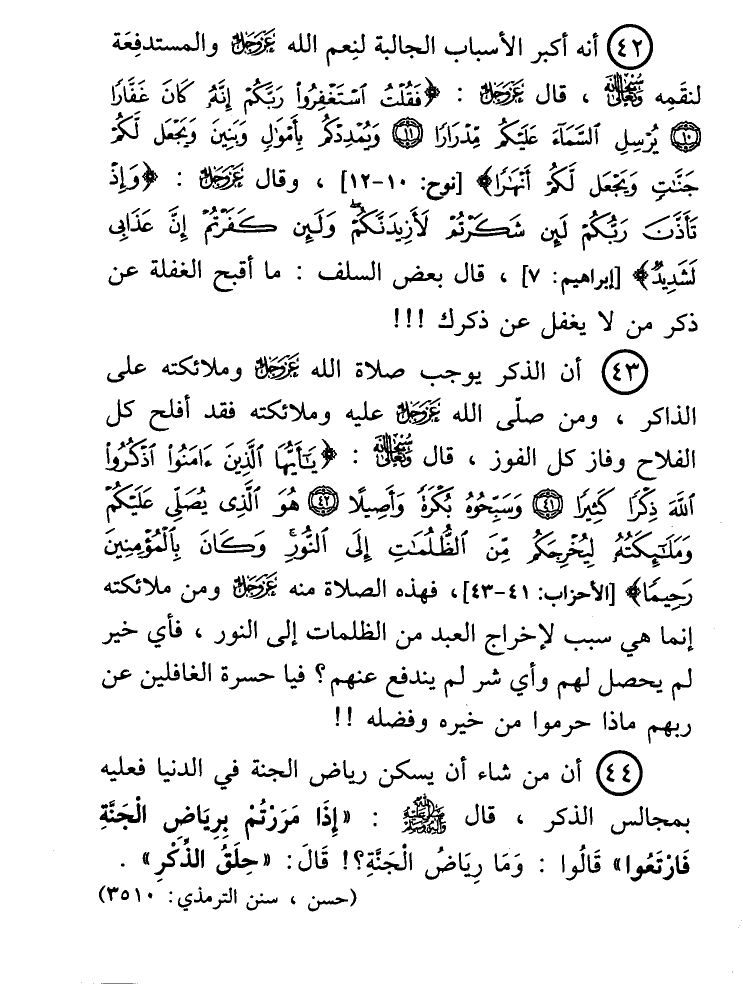 ٤٢ أنه أكبر الأسباب الجالبة لنِعم الله عَزَّوَجَلَّ والمستدفِعَة
لنقَمِه سُبْحَانَهُ وَتَعَالَى ، قال عَزَّوَجَلَّ : ﴿فَقُلْتُ ٱسْتَغْفِرُوا۟ رَبَّكُمْ إِنَّهُۥ كَانَ غَفَّارًا
١٠ يُرْسِلِ ٱلسَّمَآءَ عَلَيْكُم مِّدْرَارًا ١١ وَيُمْدِدْكُم بِأَمْوَٰلٍ وَبَنِينَ وَيَجْعَل لَّكُمْ
جَنَّـٰتٍ وَيَجْعَل لَّكُمْ أَنْهَـٰرًا﴾ [نوح: ١٠-١٢] ، وقال عَزَّوَجَلَّ : ﴿وَإِذْ
تَأَذَّنَ رَبُّكُمْ لَئِن شَكَرْتُمْ لَأَزِيدَنَّكُمْ ۖ وَلَئِن كَفَرْتُمْ إِنَّ عَذَابِى
لَشَدِيدٌ﴾ [إبراهيم: ٧] ، قال بعض السلف : ما أقبح الغفلة عن
ذكر من لا يغفل عن ذكرك !!!
٤٣ أن الذكر يوجب صلاة الله عَزَّوَجَلَّ وملائكته على
الذاكر ، ومن صلّى الله عَزَّوَجَلَّ عليه وملائكته فقد أفلح كل
الفلاح وفاز كل الفوز ، قال سُبْحَانَهُ وَتَعَالَى : ﴿يَـٰٓأَيُّهَا ٱلَّذِينَ ءَامَنُوا۟ ٱذْكُرُوا۟
ٱللَّهَ ذِكْرًا كَثِيرًا ٤١ وَسَبِّحُوهُ بُكْرَةً وَأَصِيلًا ٤٢ هُوَ ٱلَّذِى يُصَلِّى عَلَيْكُمْ
وَمَلَـٰٓئِكَتُهُۥ لِيُخْرِجَكُم مِّنَ ٱلظُّلُمَـٰتِ إِلَى ٱلنُّورِ ۚ وَكَانَ بِٱلْمُؤْمِنِينَ
رَحِيمًا﴾ [الأحزاب: ٤١-٤٣] ، فهذه الصلاة منه عَزَّوَجَلَّ ومن ملائكته
إنما هي سبب لإخراج العبد من الظلمات إلى النور ، فأي خير
لم يحصل لهم وأي شر لم يندفع عنهم؟ فيا حسرة الغافلين عن
ربهم ماذا حرموا من خيره وفضله !!
٤٤ أن من شاء أن يسكن رياض الجنة في الدنيا فعليه
بمجالس الذكر ، قال صلى الله عليه وآله وسلم : «إِذَا مَرَرْتُمْ بِرِيَاضِ الْجَنَّةِ
فَارْتَعُوا» قَالُوا : وَمَا رِيَاضُ الْجَنَّةِ؟! قَالَ: «حِلَقُ الذِّكْرِ» .
(حسن ، سنن الترمذي: ٣٥١٠)